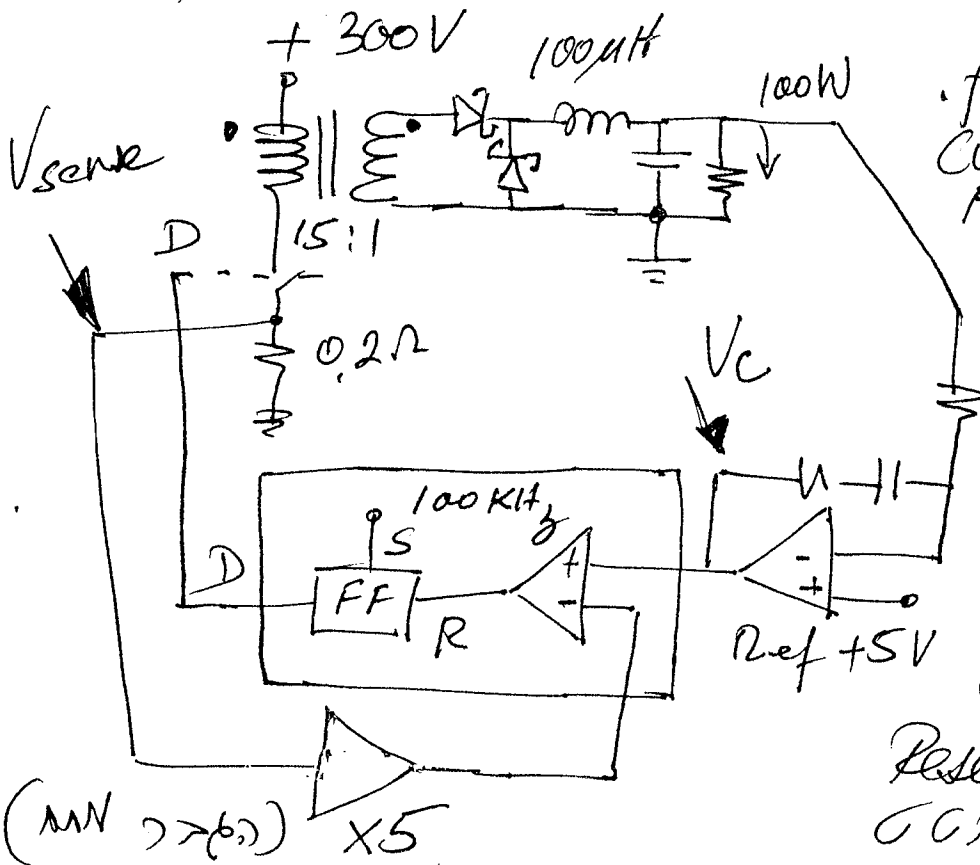 + 300V
100μH
100W
Vsense
15:1
D
0.2Ω
Vc
100KHz
S
D
FF
R
+
-
-
+
Ref +5V
X5